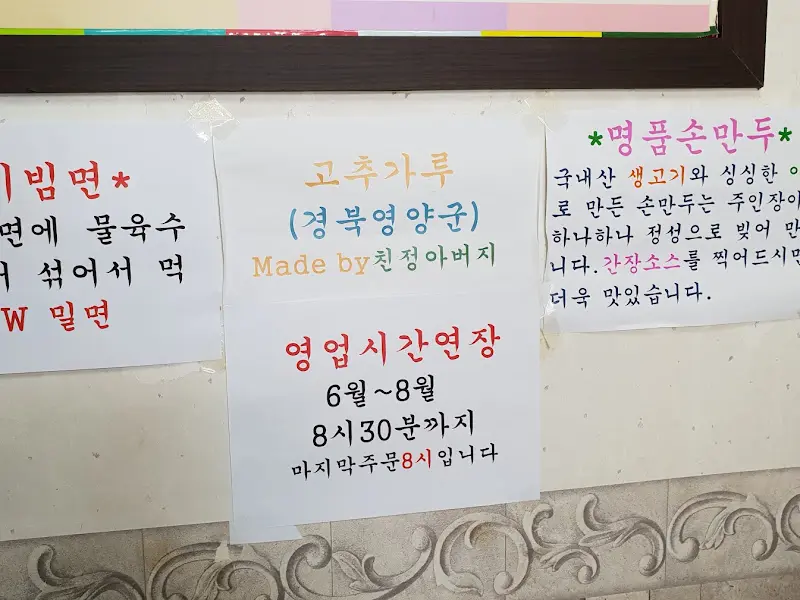 비빔면*
면에 물육수
섞어서 먹
W 밀면
고추가루
(경북영양군)
Made by친정아버지
영업시간연장
6월~8월
8시30분까지
마지막주문8시입니다
*명품손만두*
국내산 생고기와 싱싱한
로 만든 손만두는 주인장이
하나하나 정성으로 빚어 만
니다.간장소스를 찍어드시면
더욱 맛있습니다.